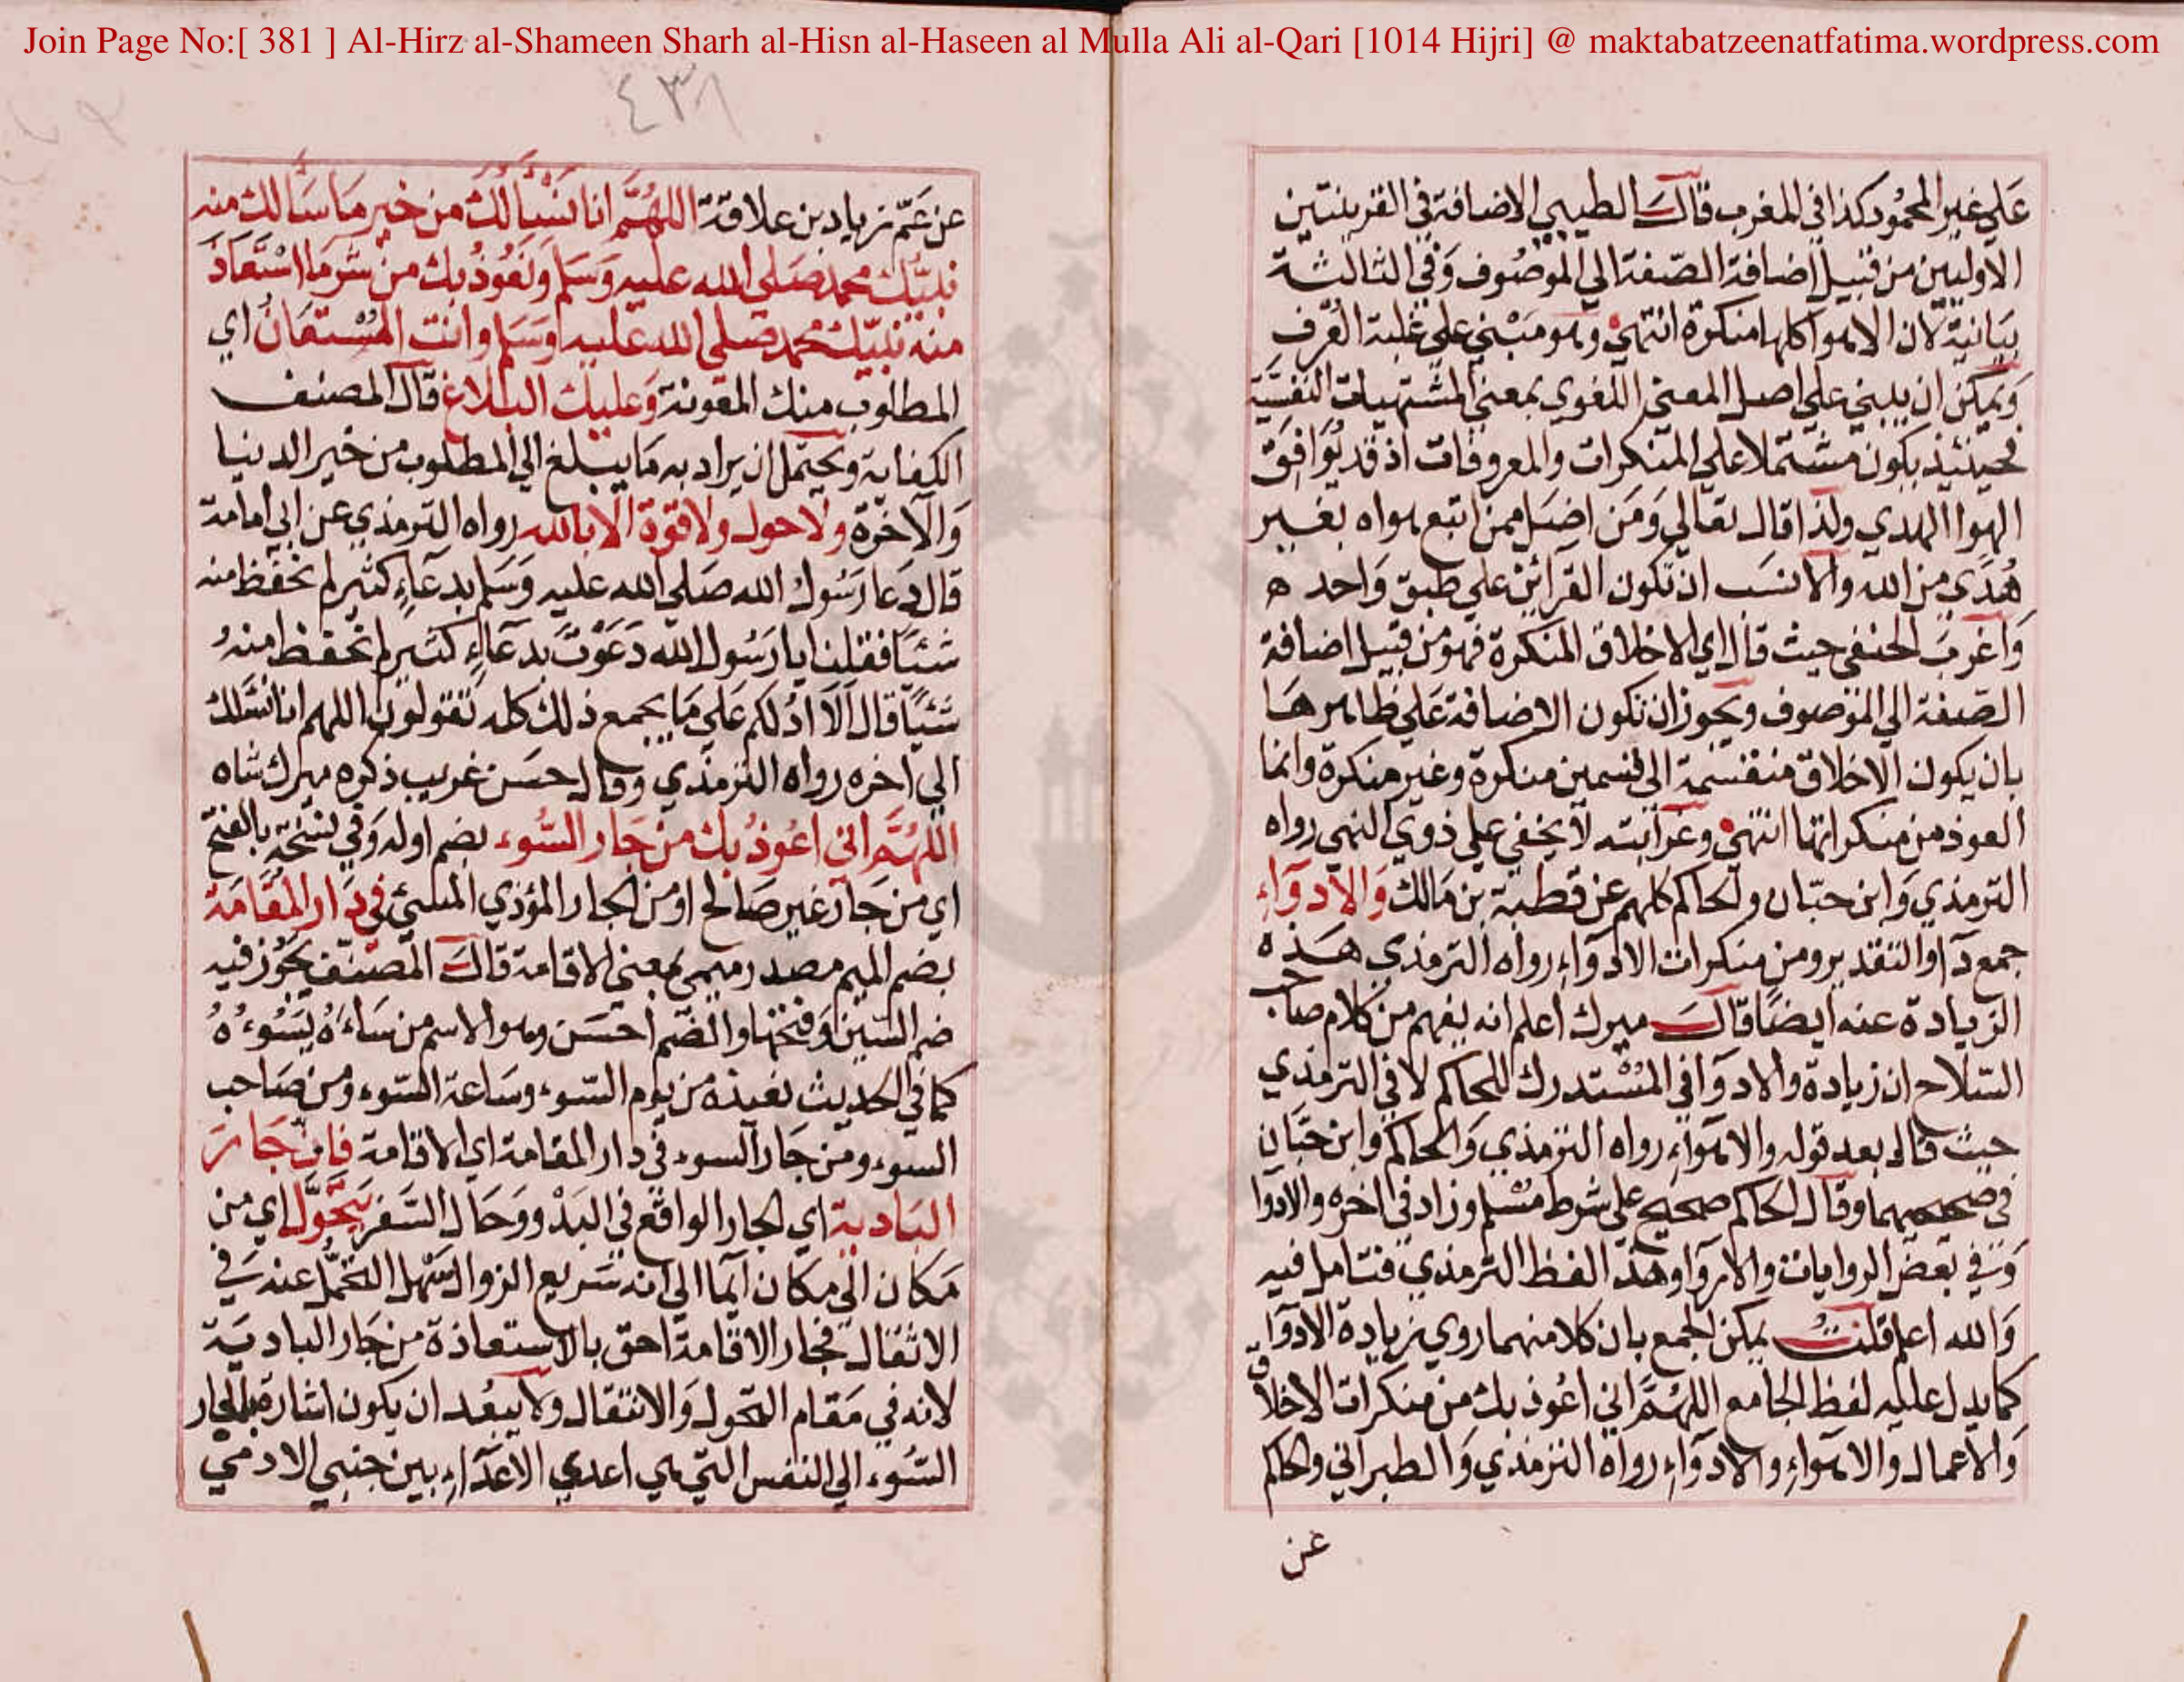 Join Page No:[ 381 ] Al-Hirz al-Shameen Sharh al-Hisn al-Haseen al Mulla Ali al-Qari [1014 Hijri] @ maktabatzeenatfatima.wordpress.com
٤٣٨
عَلي غير المحمُود كذا في المغرب قالَ الطيبي الاضافة في القرينتين
الاوليين من قبيل اضافة الصّفة الي الموصُوف وَفي الثالثة
بيَانية لان الاهوا كلها منكرة انتهي وهو مَبْني علي غلبة العُرف
وَيمكن ان يبني علي اصل المعني اللغوي بمعني المشتهيات النفسيَّة
فحينئذ يكون مشتملا علي المنكرات والمعروفات اذ قد يُوَافق
الهوا الهدي ولذا قال تعالي وَمَن اضَل ممن اتبع هواه بغير
هُدًي من الله والانسَب ان تكون القرائن علي طبق وَاحد ه
وَاغربَ الحنفي حيث قال اي الاخلاق المنكرة فهو من قبيل اضافة
الصّفة الي الموصوف ويجوز ان تكون الاضافة عَلي ظاهرهَا
بان يكون الاخلاق منقسمة الي قسمين منكرة وغير منكرة وانما
العوذ من منكراتها انتهي وغرابته لا يخفي علي ذوي النهي رواه
الترمذي وَابن حبّان والحاكم كلهم عن قطبة بن مَالك وَالادوَاءِ
جمع دَآ والتقدير ومن منكرات الادوَاءِ رواه الترمذي هَذه
الزيادة عنه ايضًا قالَ ميرك اعلم انه يفهم من كلام صاحب
السّلاح ان زيادة والادوَا في المسْتدرك للحاكم لا في الترمذي
حيث قال بعد قوله والاهوَاءِ رواه الترمذي وَالحاكم وابن حبَّان
في صحيحيهما وقال الحاكم صحيح علي شرط مسْلم وزاد في اخره والادوا
وَفي بعض الروايات والاروا وهذا لفظ الترمذي فتامل فيه
وَالله اعلم قلتُ يمكن الجمع بان كلا منهما روي زيادة الادوَا
كما يدل عليه لفظ الجامع اللهُمَّ اني اعُوذ بك من منكرات الاخلاق
وَالاعمال والاهوَاءِ والادوَاءِ رواه الترمذي وَالطبراني والحاكم
عن
عن عَمّ زياد بن علاقة اللهُمَّ انا نَسْألُكَ من خير مَا سَألك منه
نبيّك محمد صَلي الله عليه وَسَلم وَنعُوذُ بك من شر مَا اسْتعَاذَ
منه نبيّك محمد صَلي الله عليه وَسَلم وانت المُسْتعَانُ اي
المطلوب منك المعونة وَعليك البلاغ قال المصنف
الكفاية ويحتمل ان يراد به مَا يبلغ الي المطلوب من خير الدنيا
وَالآخرة ولا حول ولا قوّة الا بالله رواه الترمذي عن ابي امامة
قال دَعا رَسُولُ الله صَلي الله عليه وَسَلم بدعَآءٍ كثير لم نحفظ منه
شيًا فقلنا يا رَسُول الله دَعَوْتَ بدعَآءٍ كثير لم نحفظ منهُ
شيًا قال اَلَا ادُلكم عَلي مَا يجمع ذلك كله تقولون اللهم انا نسَلك
الي اخره رواه الترمذي وقال حسَن غريب ذكره ميرك شاه
اللهُمَّ اني اعُوذُ بك من جَار السُّوء بضم اوله وَفي نسْخة بالفتح
اي من جَار غير صَالح او من الجار المؤذي المسئ في دَار المُقَامَة
بضم الميم مصدر ميمي بمعني الاقامة قالَ المصَنّف يجُوز فيه
ضم السّين وَفتحها والضّم احسَن وهو الاسم من سَاءَهُ يَسُوءُهُ
كما في الحديث نعيذه من يوم السّوء وسَاعة السّوء ومن صَاحب
السوء ومن جَار السوء في دار المقامة اي الاقامة فان جَارَ
البَادية اي الجار الواقع في البَدْو وَحَال السَّفر يَتَحَوَّل اي من
مَكان الي مكان ايمآ الي انه سَريع الزوال سَهل التحَمُّل عنه في
الاثقال فجار الاقامة احق بالاستعاذة من جَار البادية
لانه في مَقام التحول وَالانتقال ولا يبعُد ان يكون اشارة بالجار
السُّوء الي النفس التي هي اعدي الاعدَاءِ بين جنبي الادمي